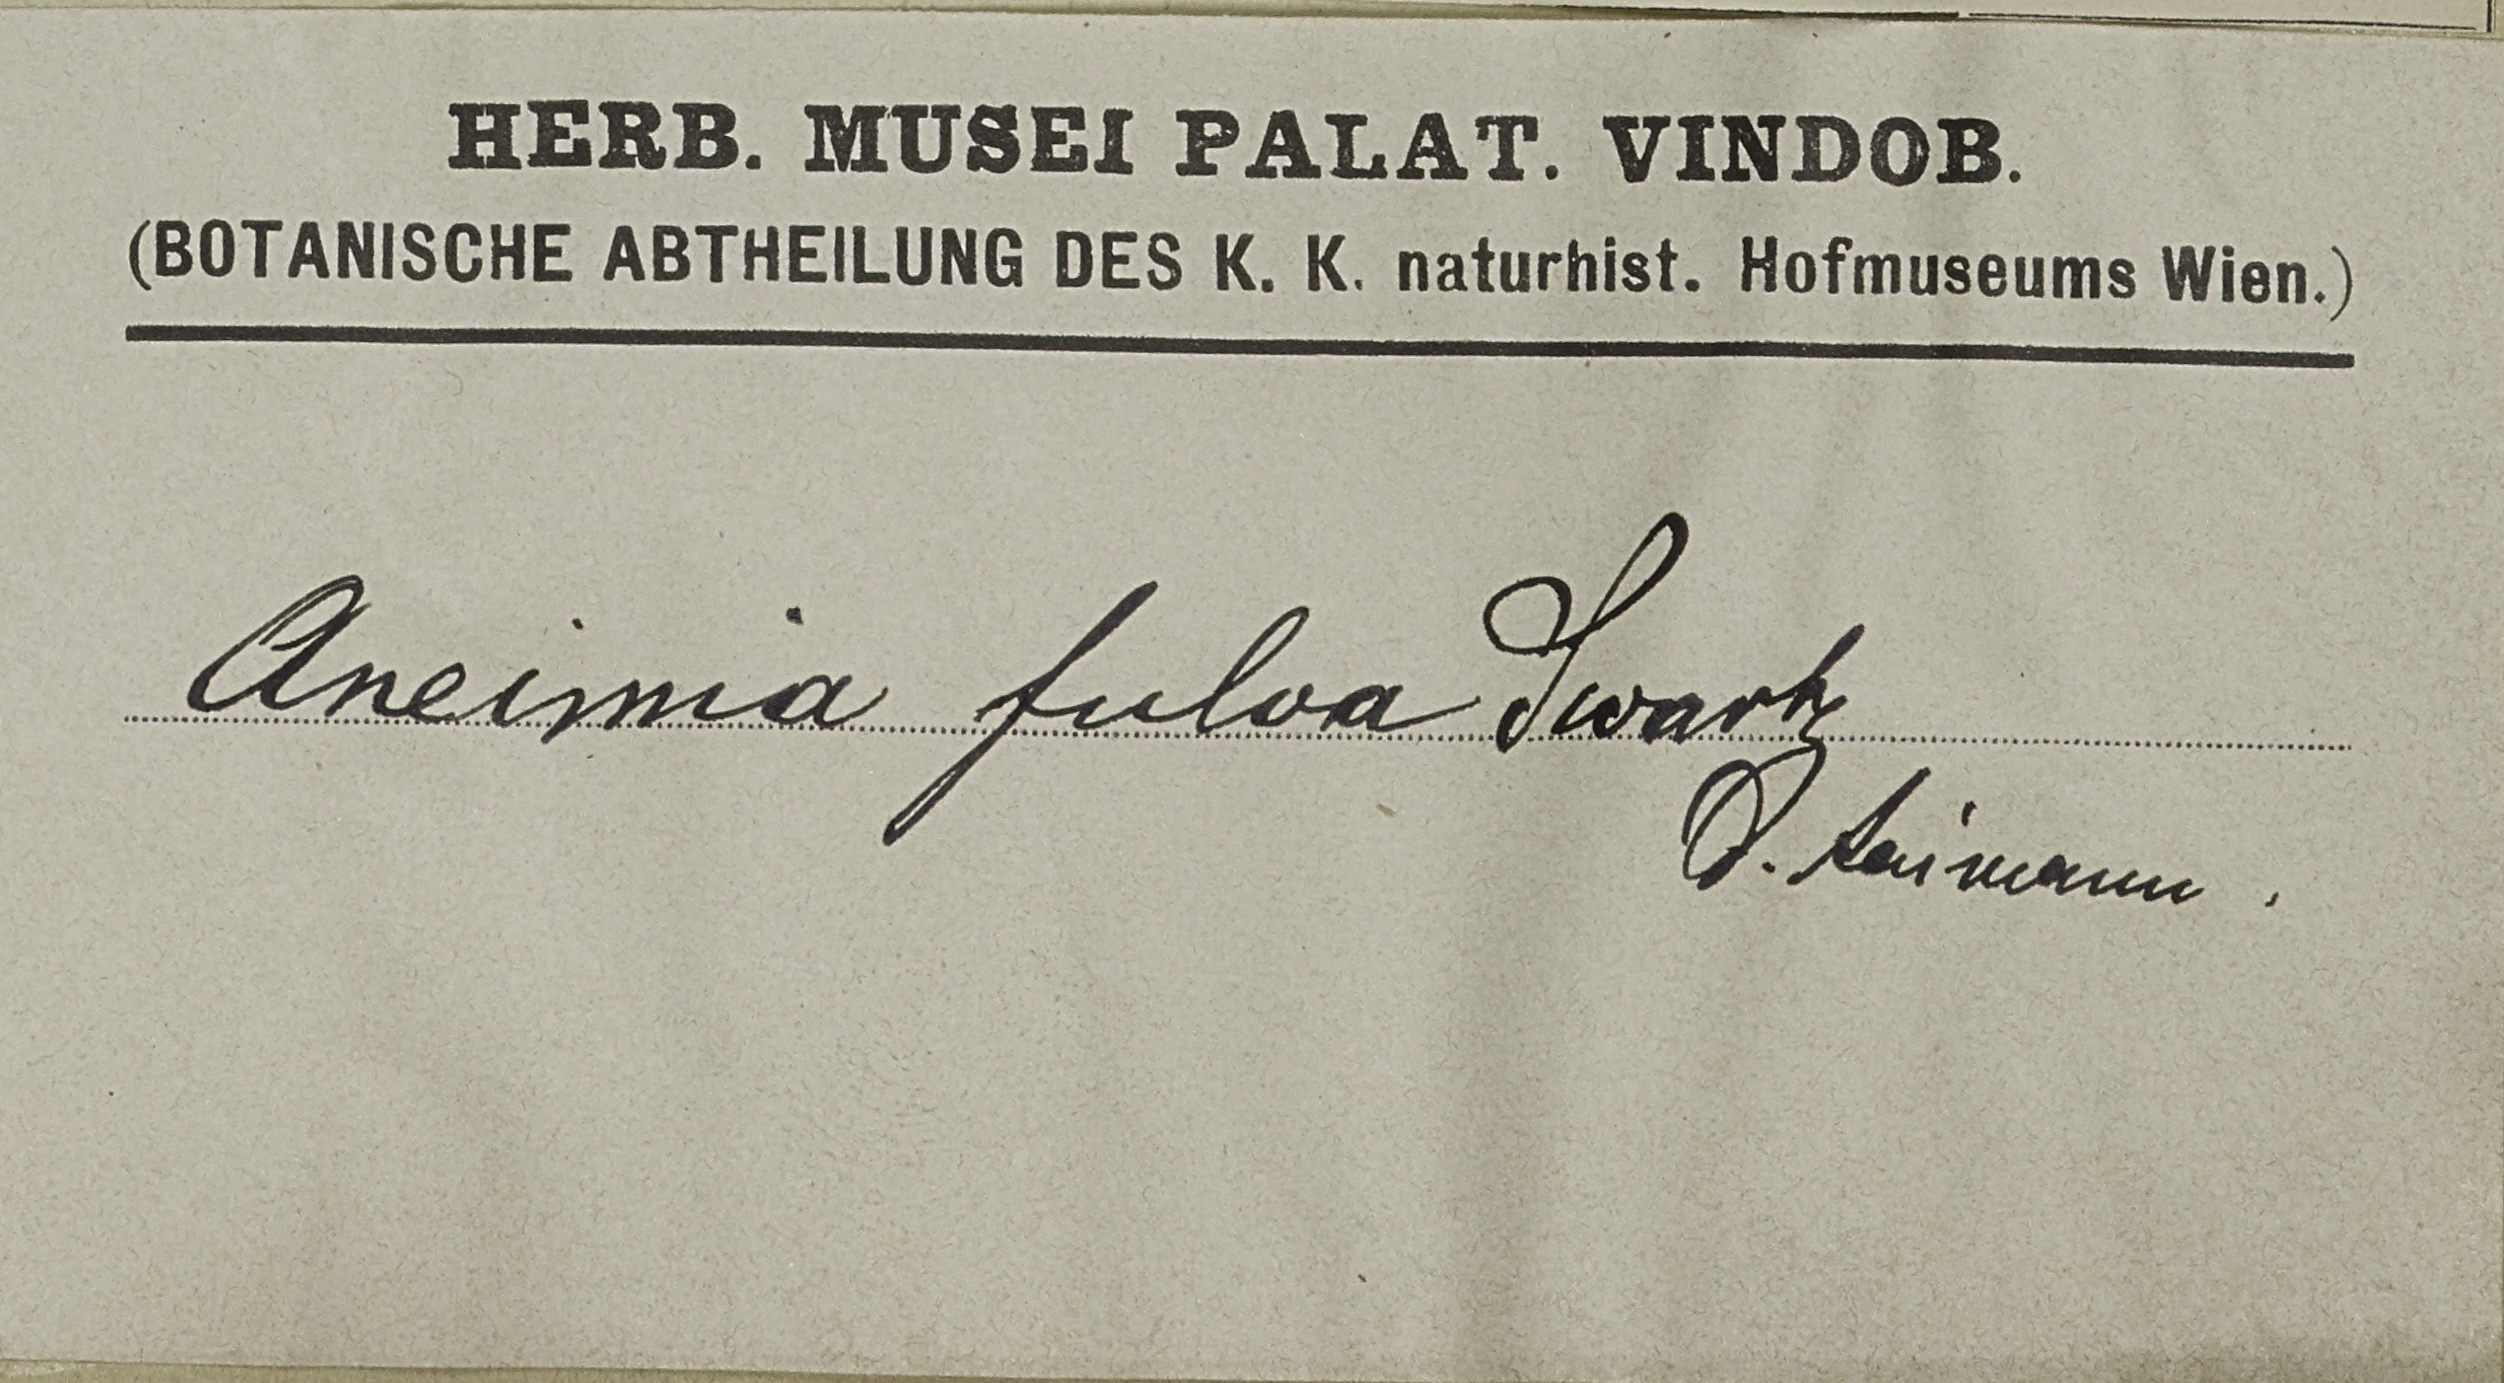 HERB. MUSEI PALAT. VINDOB.
(BOTANISCHE ABTHEILUNG DES K. K. naturhist. Hofmuseums Wien.)
Aneimia fulva Swartz